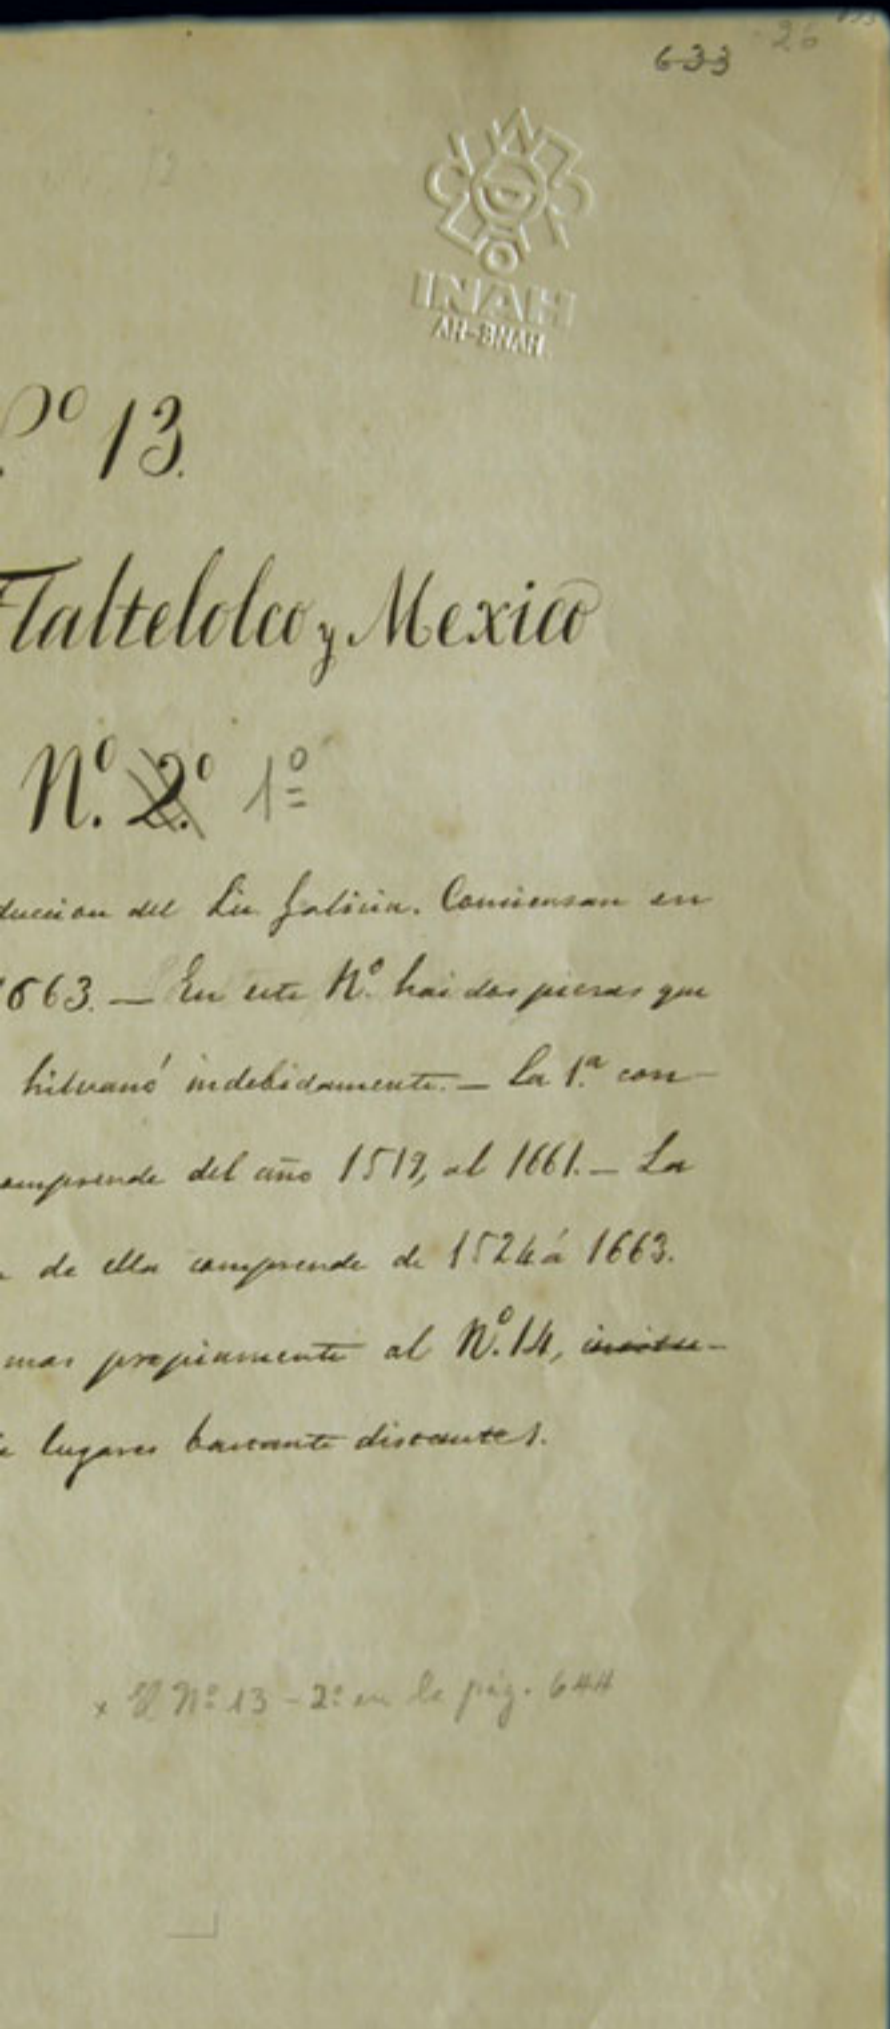 633 26
INAH
AH-BNAH
Nº 13.
Tlaltelolco y Mexico
Nº. 2º 1º
duccion del Lic Galicia. Comiensan en
1663. — En este Nº. hai dos piesas que
hilvanó indebidamente. — La 1.ª con-
omprende del año 1519, al 1661. — La
de ella comprende de 1524 á 1663.
mas propiamente al Nº. 14,
lugares bastante distantes.
x El Nº 13 - 2º en la pág. 644